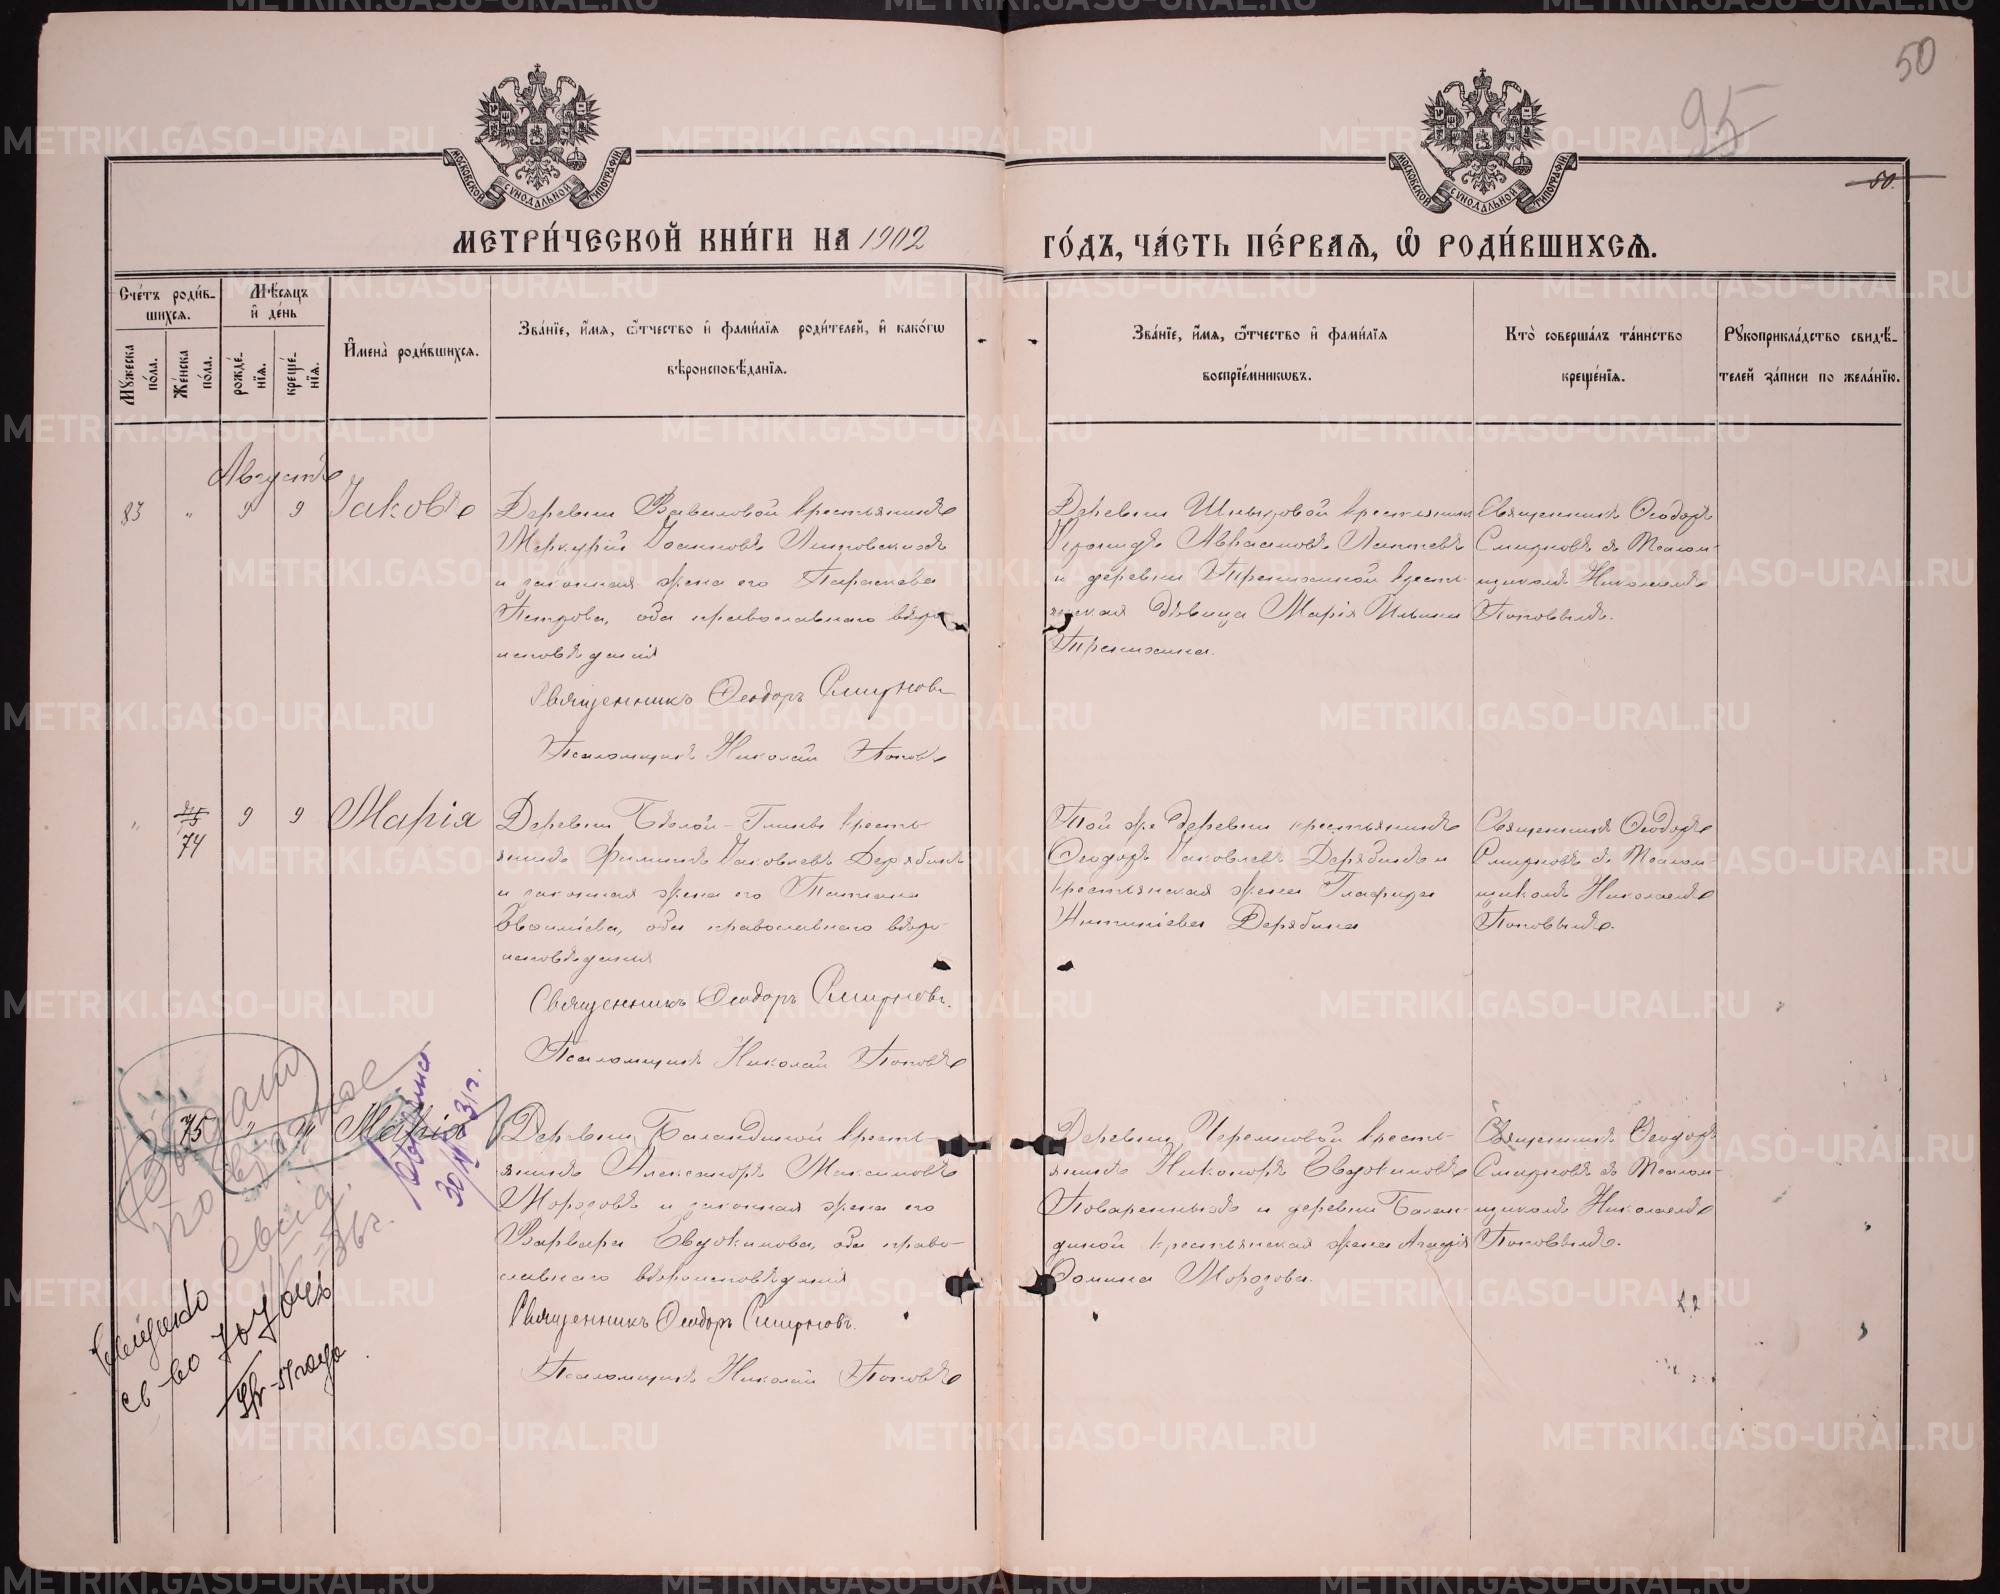 50
95
50.
МОСКОВСКОЙ СѴНОДАЛЬНОЙ ТИПОГРАФІИ
МОСКОВСКОЙ СѴНОДАЛЬНОЙ ТИПОГРАФІИ
МЕТРИ́ЧЕСКОЙ КНИ́ГИ НА 1902
ГО́ДЪ, ЧА́СТЬ ПЕ́РВАѦ, Ѡ РОДИ́ВШИХСѦ.
Сче́тъ роди́в-
шихсѧ.
Мꙋжеска по́ла.
Же́нска по́ла.
Мѣ́сѧцъ
и҆ де́нь
рожде́-
нїѧ.
креще́-
нїѧ.
И҆мена̀ роди́вшихсѧ.
Зва́нїе, и҆́мѧ, ѻ҆́тчество и҆ фами́лїѧ роди́телей, и҆ како́гѡ
вѣроисповѣ́данїѧ.
Зва́нїе, и҆́мѧ, ѻ҆́тчество и҆ фами́лїѧ
воспрїе́мникѡвъ.
Кто̀ соверша́лъ та́инство
креще́нїѧ.
Рꙋкоприкла́дство свидѣ́-
телей за́писи по жела́нїю.
Августъ
83 " 9 9 Іаковъ
Деревни Вавиловой крестьянинъ
Меркурій Іоанновъ
и законная жена его Параскева
Петрова, оба православнаго вѣро-
исповѣданія
Священникъ Ѳеодоръ Смирновъ
Псаломщикъ Николай Поповъ
Деревни крестьянинъ
Леонидъ Авраамовъ Лаптевъ
и деревни крестьянская
дѣвица Марія Ильина
Священникъ Ѳеодоръ
Смирновъ съ Псалом-
щикомъ Николаемъ
Поповымъ.
" 75 9 9 Марія
74
Деревни Бѣлой-Глины кресть-
янинъ Филиппъ Іаковлевъ Дерябинъ
и законная жена его Татіана
оба православнаго вѣро-
исповѣданія
Священникъ Ѳеодоръ Смирновъ.
Псаломщикъ Николай Поповъ
Той же деревни крестьянинъ
Ѳеодоръ Іаковлевъ Дерябинъ и
крестьянская жена Глафира
Дерябина
Священникъ Ѳеодоръ
Смирновъ съ Псалом-
щикомъ Николаемъ
Поповымъ.
75 Марія
Деревни Баландиной кресть-
янинъ Александръ Максимовъ
Морозовъ и законная жена его
Варвара Евдокимова, оба право-
славнаго вѣроисповѣданія
Священникъ Ѳеодоръ Смирновъ.
Псаломщикъ Николай Поповъ
Деревни Черемховой кресть-
янинъ Никаноръ Евдокимовъ
Поваренныхъ и деревни Балан-
диной крестьянская жена Агафія
Ѳомина Морозова.
Священникъ Ѳеодоръ
Смирновъ съ Псалом-
щикомъ Николаемъ
Поповымъ.
Выдано
повторное
свид.
36 г.
31 г.